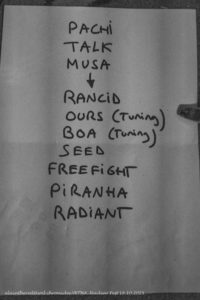 PACHI
TALK
MUSA
↓
RANCID
OURS (Tuning)
BOA (Tuning)
SEED
FREEFIGHT
PiRANHA
RADIANT